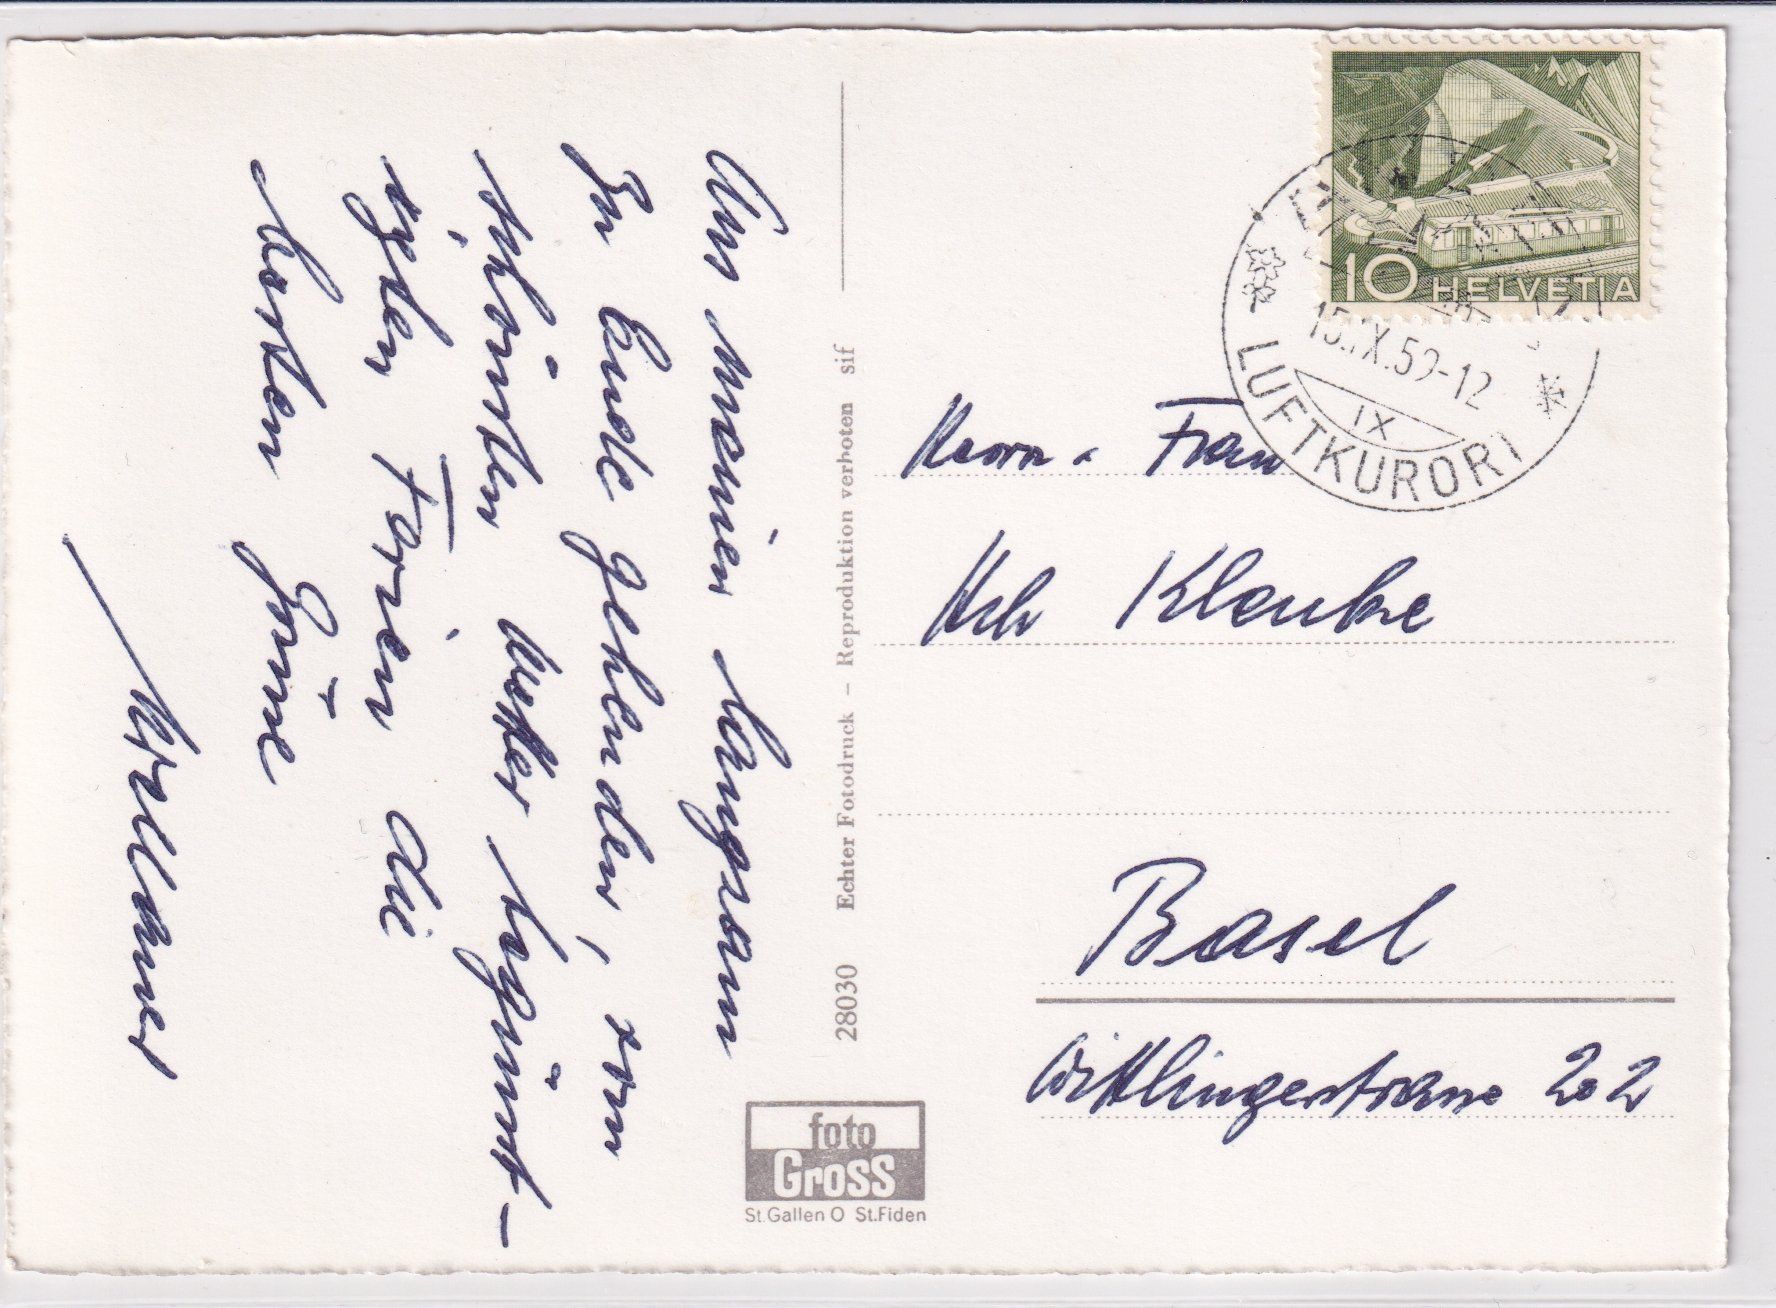 Aus meinen langsam
zu Ende gehenden, vom
schönsten Wetter begünst-
igten Ferien die
besten Grüsse
28030 Echter Fotodruck – Reproduktion verboten sif
foto
Gross
St.Gallen O St.Fiden
10 HELVETIA
15.IX.59-12
IX
LUFTKURORT
Herrn u. Frau
Basel
Wittlingerstrasse 202